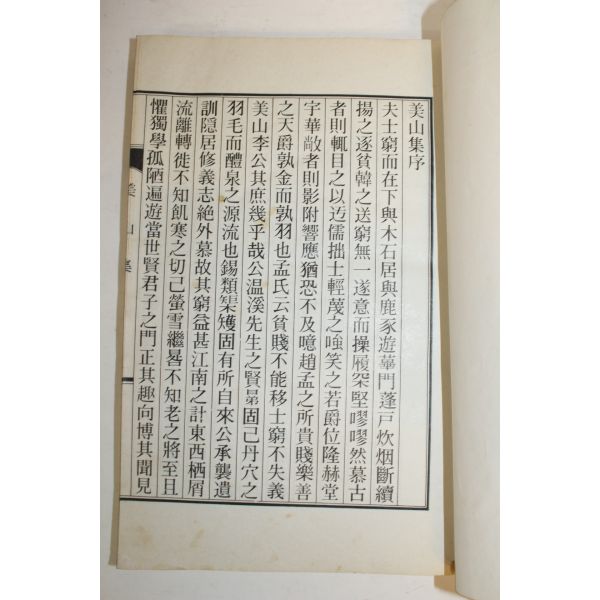 美山集序
夫士窮而在下與木石居與鹿豕遊蓽門蓬戶炊烟斷續
揚之逐貧韓之送窮無一遂意而操履槩堅嘐嘐然慕古
者則輒目之以迃儒拙士輕蔑之嗤笑之若爵位隆赫堂
宇華敞者則影附響應猶恐不及噫趙孟之所貴賤樂善
之天爵孰金而孰羽也孟氏云貧賤不能移士窮不失義
美山李公其庶幾乎哉公溫溪先生之賢裔固己丹穴之
羽毛而醴泉之源流也錫類榘矱固有所自來公承襲遺
訓隱居修義志絶外慕故其窮益甚江南之計東西栖屑
流離轉徙不知飢寒之切己螢雪繼晷不知老之將至且
懼獨學孤陋遍遊當世賢君子之門正其趣向博其聞見
美山集